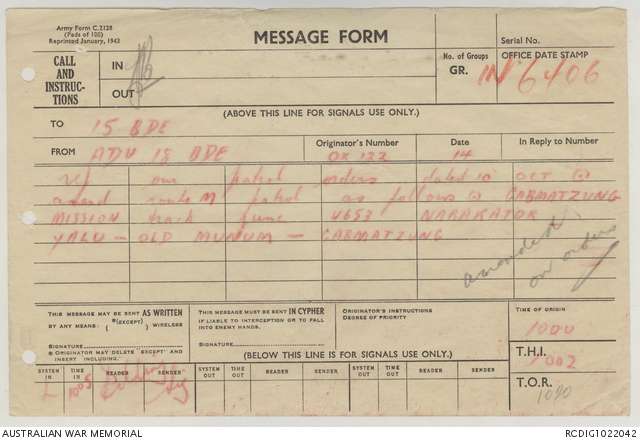 Army Form C.2128
(Pads of 100)
Reprinted January, 1943
MESSAGE FORM
Serial No.
CALL AND INSTRUC-TIONS
IN
OUT
No. of Groups
GR.
OFFICE DATE STAMP
IN 6406
(ABOVE THIS LINE FOR SIGNALS USE ONLY.)
TO 15 BDE
FROM ADV 15 BDE
Originator's Number
OX 122
Date
14
In Reply to Number
ref our patrol orders dated 10 OCT
amend route M patrol as follows GABMATZUNG
MISSION track junc 4653 NARAKATOR
YALU - OLD MUNUM - GABMATZUNG
amended on orders
THIS MESSAGE MAY BE SENT AS WRITTEN
BY ANY MEANS. (*(EXCEPT) ) WIRELESS
SIGNATURE
ORIGINATOR MAY DELETE "EXCEPT" AND INSERT INCLUDING.
THIS MESSAGE MUST BE SENT IN CYPHER
IF LIABLE TO INTERCEPTION OR TO FALL INTO ENEMY HANDS.
SIGNATURE
ORIGINATOR'S INSTRUCTIONS
DEGREE OF PRIORITY
TIME OF ORIGIN
1000
(BELOW THIS LINE IS FOR SIGNALS USE ONLY.)
T.H.I.
1002
SYSTEM IN
TIME IN
READER
SENDER
SYSTEM OUT
TIME OUT
READER
SENDER
SYSTEM OUT
TIME OUT
READER
SENDER
SYSTEM OUT
TIME OUT
READER
SENDER
L 1005
T.O.R.
1020
AUSTRALIAN WAR MEMORIAL
RCDIG1022042